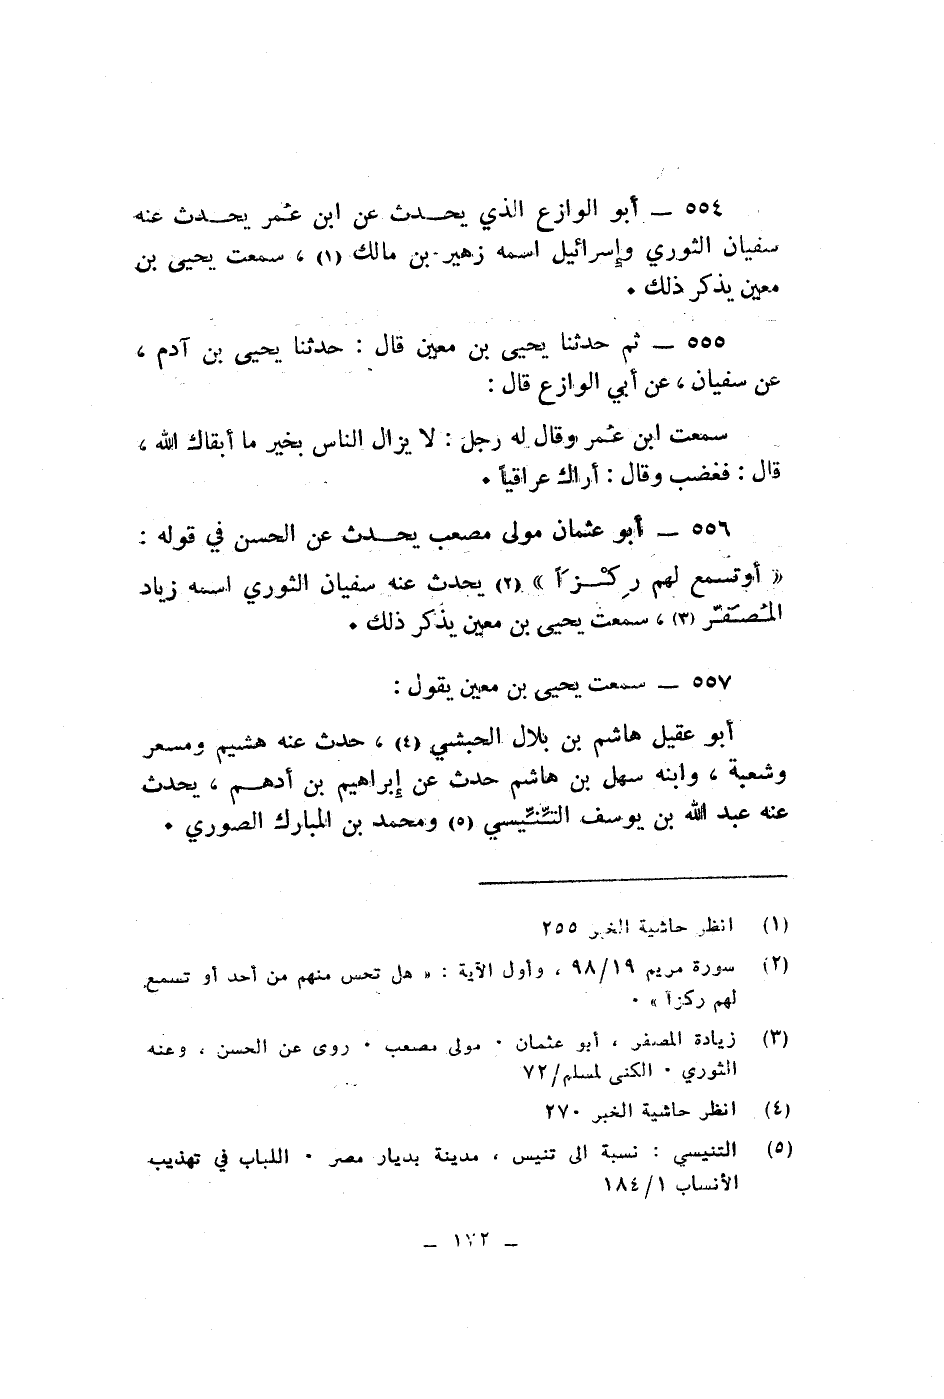 ٥٥٤ ـ أبو الوازع الذي يحـــدث عن ابن عُمر يحـــدث عنه
سفيان الثوري وإسرائيل اسمه زهير بن مالك (١) ، سمعت يحيى بن
معين يذكر ذلك •
٥٥٥ ـ ثم حدثنا يحيى بن معين قال : حدثنا يحيى بن آدم ،
عن سفيان ، عن أبي الوازع قال :
سمعت ابن عُمر وقال له رجل : لا يزال الناس بخير ما أبقاك الله ،
قال : فغضب وقال : أراك عراقياً •
٥٥٦ ـ أبو عثمان مولى مصعب يحـــدث عن الحسن في قوله :
« أوتسمع لهم رِكْـــزاً » (٢) يحدث عنه سفيان الثوري اسمه زياد
المُصَفِّر (٣) ، سمعت يحيى بن معين يذكر ذلك •
٥٥٧ ـ سمعت يحيى بن معين يقول :
أبو عقيل هاشم بن بلال الحبشي (٤) ، حدث عنه هشيم ومسعر
وشعبة ، وابنه سهل بن هاشم حدث عن إبراهيم بن أدهـــم ، يحدث
عنه عبد الله بن يوسف التِّنِّيسي (٥) ومحمد بن المبارك الصوري •
(١) انظر حاشية الخبر ٢٥٥
(٢) سورة مريم ٩٨/١٩ ، وأول الآية : « هل تحس منهم من أحد أو تسمع
لهم ركزاً » •
(٣) زيادة المصفر ، أبو عثمان • مولى مصعب • روى عن الحسن ، وعنه
الثوري • الكنى لمسلم/٧٢
(٤) انظر حاشية الخبر ٢٧٠
(٥) التنيسي : نسبة الى تنيس ، مدينة بديار مصر • اللباب في تهذيب
الأنساب ١٨٤/١
ـ ١٧٢ ـ